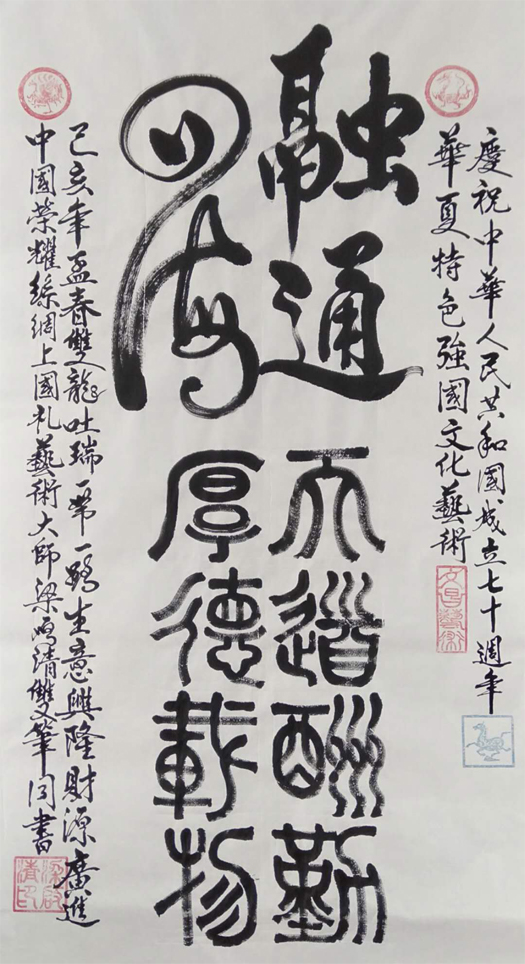 慶祝中華人民共和國成立七十週年
華夏特色強國文化藝術
文昌藝術
融通
四海
天道酬勤
厚德載物
己亥年孟春雙龍吐瑞一一生意興隆財源廣進
中國榮耀絲綢上國礼藝術大師梁鳴清雙筆同書